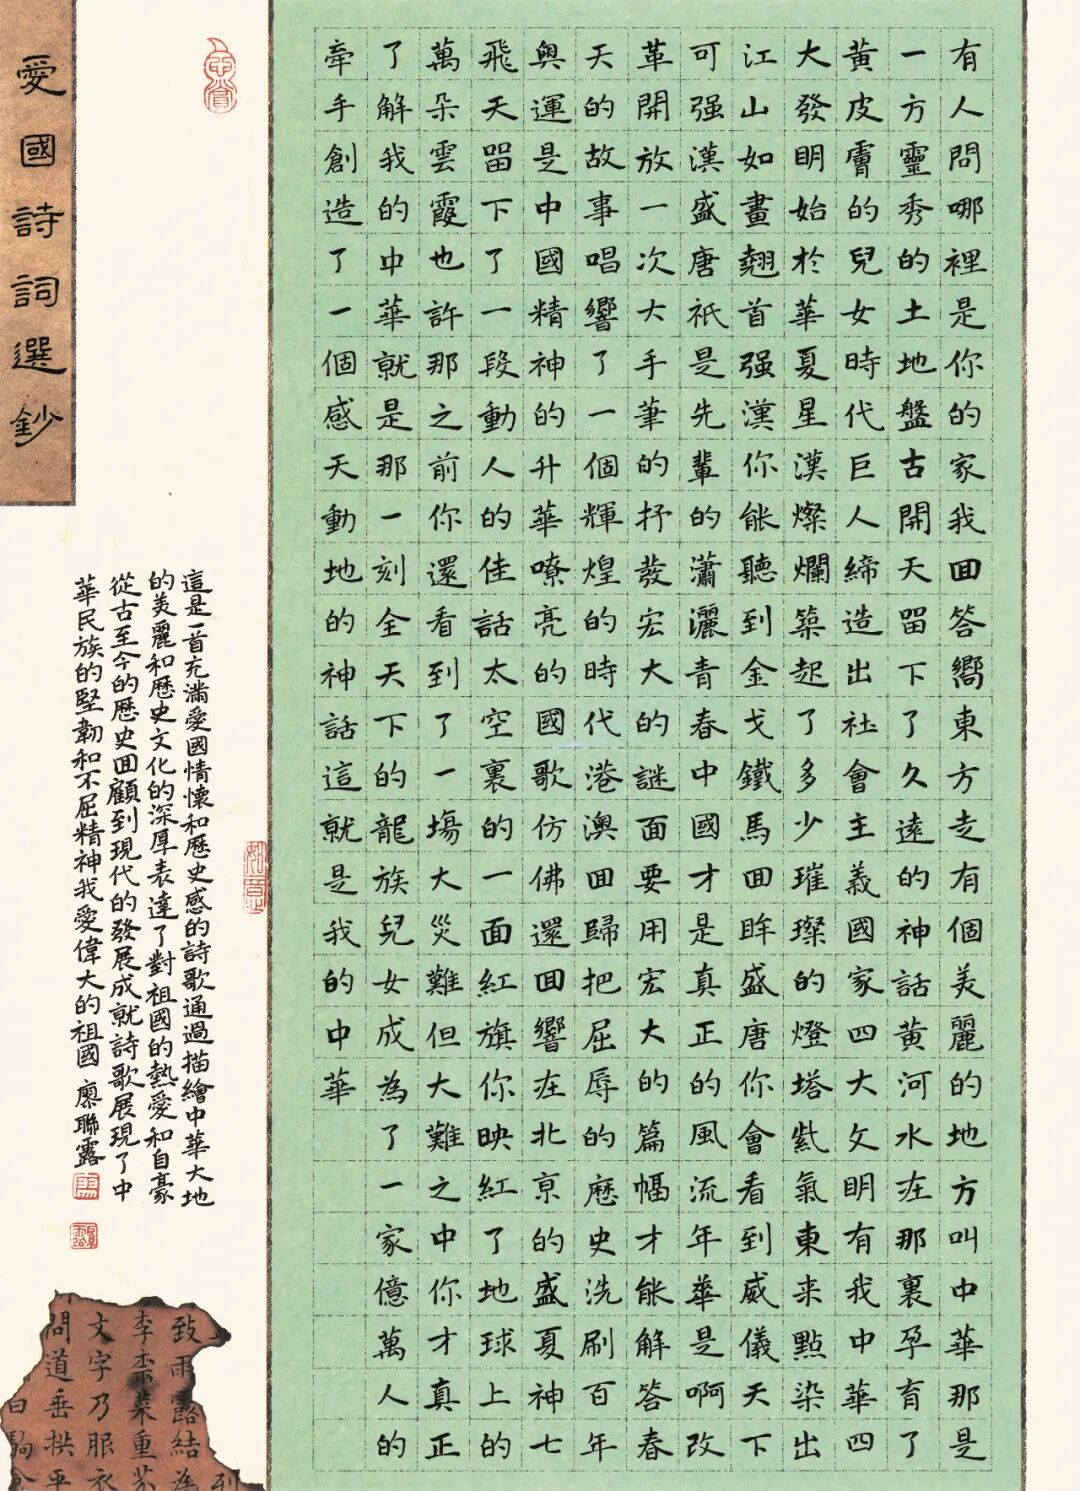 有人問哪裡是你的家我回答嚮東方走有個美麗的地方叫中華那是
一方靈秀的土地盤古開天留下了久遠的神話黃河水在那裏孕育了
黃皮膚的兒女時代巨人締造出社會主義國家四大文明有我中華四
大發明始於華夏星漢燦爛築起了多少璀璨的燈塔紫氣東来點染出
江山如畫翹首强漢你能聽到金戈鐵馬回眸盛唐你會看到威儀天下
可强漢盛唐祇是先輩的瀟灑青春中國才是真正的風流年華是啊改
革開放一次大手筆的抒發宏大的謎面要用宏大的篇幅才能解答春
天的故事唱響了一個輝煌的時代港澳回歸把屈辱的歷史洗刷百年
奥運是中國精神的升華嘹亮的國歌仿佛還回響在北京的盛夏神七
飛天留下了一段動人的佳話太空裏的一面紅旗你映紅了地球上的
萬朵雲霞也許那之前你還看到了一場大災難但大難之中你才真正
了解我的中華就是那一刻全天下的龍族兒女成為了一家億萬人的
牽手創造了一個感天動地的神話這就是我的中華
這是一首充滿愛國情懷和歷史感的詩歌通過描繪中華大地
的美麗和歷史文化的深厚表達了對祖國的熱愛和自豪
從古至今的歷史回顧到現代的發展成就詩歌展現了中
華民族的堅韌和不屈精神我愛偉大的祖國 廖聯露
愛國詩詞選鈔
列
致雨露結為
李柰菜重芥
文字乃服衣
問道垂拱平
白駒食